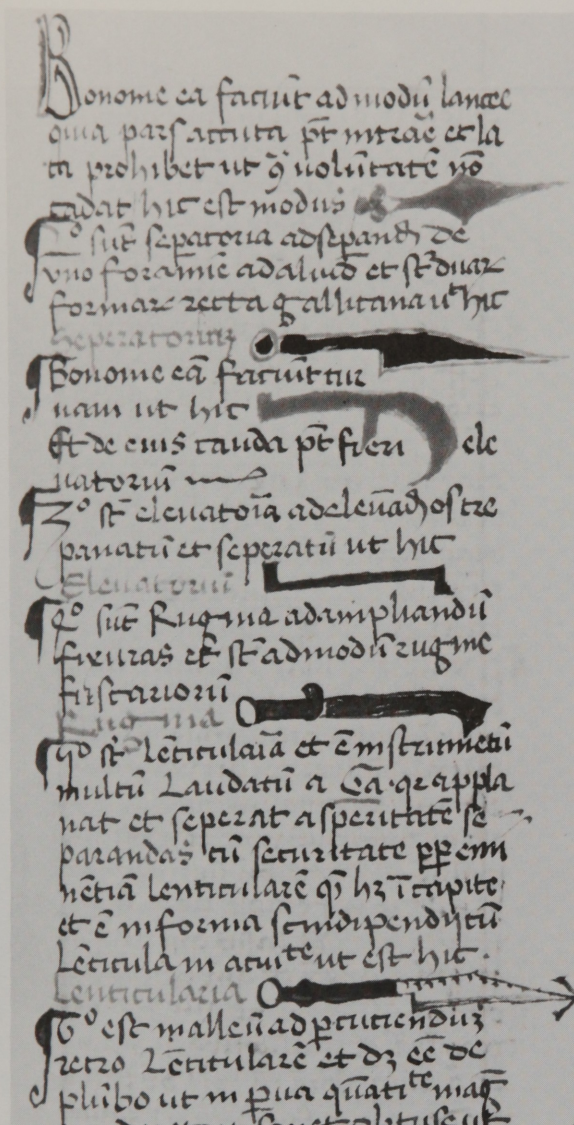 Bonome ea faciūt ad modū lancee
quia pars accuta pt̄ intrāe et la
ta prohibet ut ꝯ̄ voluntatē nō
cadat hic est modus
2º sūt sepatoria ad sepandū de
uno foramīe ad aliud et st̄ duar
formar recta gallicana ut hic
Seperatorium
Bonome eā faciūt cur
uam ut hic
Et de eius cauda pt̄ fieri ele
uatoriū
3º st̄ eleuatoīa ad eleuādū os tre
panatū et seperatū ut hic
Eleuatoriū
4º sūt Rugine ad ampliandū
fixuras et st̄ ad modū rugine
Rugina
st̄ lēticulaīa et ē instrumētū
multū Laudatū a Ga. qr appla
nat et seperat asperitatē se
parandas cū securitate ꝓp emi
nētiā lenticularē qā hꝫ ī capite
et ē in forma scindipendij cū
Lēticula in acuite ut est hic.
Lenticularia
6º est malleū ad ꝑcuciendū
retro Lēticularē et dꝫ eē de
plūbo ut in ꝑua quātite mag̅